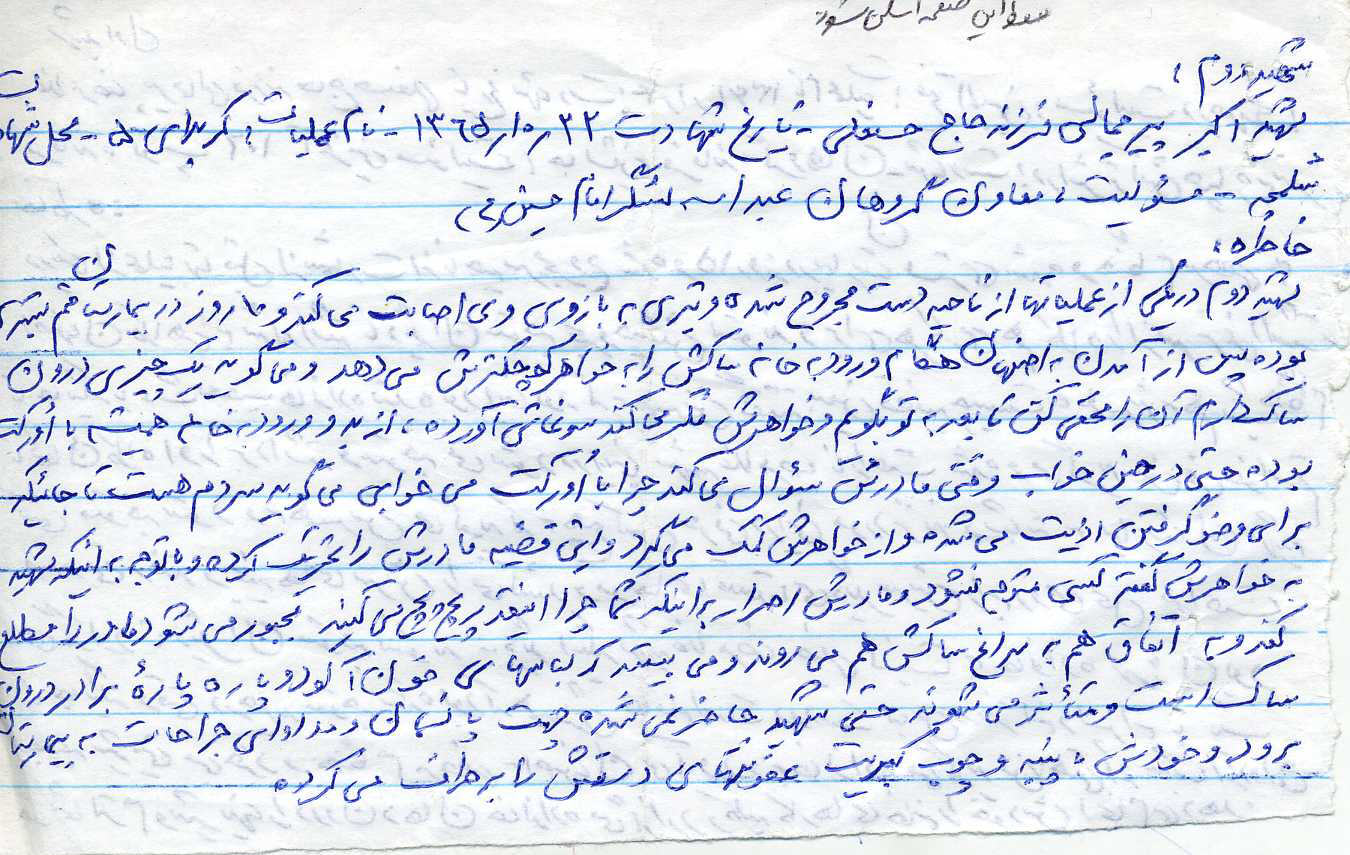 فقط این صفحه اسکن شود
شهید دوم :
شهید اکبر پیرجمالی فرزند حاج حسنعلی - تاریخ شهادت ۲۳ /۱۰/ ۱۳۶۵ - نام عملیات : کربلای ۵ - محل شهادت
شلمچه - مسئولیت : معاون گروهان عبداله لشگر امام حسین (ع)
خاطره :
شهید دوم در یکی از عملیاتها از ناحیه دست مجروح شده و تیری به بازوی وی اصابت می کند و ۱۵ روز در بیمارستان قم بستری
بوده پس از آمدن به اصفهان هنگام ورود به خانه ساکش را به خواهر کوچکترش می دهد و می گوید یک چیزی درون
ساک دارم آن را مخفی کن تا بعد به تو بگویم و خواهرش فکر می کند سوغاتی آورده ، از بدو ورود به خانه همیشه با اُورکت
بوده حتی در حین خواب وقتی مادرش سئوال می کند چرا با اُورکت می خوابی می گوید سردم هست تا جائیکه
برای وضو گرفتن اذیت می شده و از خواهرش کمک می گیرد و این قضیه مادرش را تحریک کرده و با توجه به اینکه شهید
به خواهرش گفته کسی متوجه نشود و مادرش اصرار به اینکه شما چرا اینقدر پچ پچ می کنید مجبور می شود مادر را مطلع
کند و به اتفاق هم به سراغ ساکش هم می روند و می بینند که لباسهای خون آلود و پاره پارۀ برادر درون
ساک است و متأثر می شوند حتی شهید حاضر نمی شده جهت پانسمان و مداوای جراحات به بیمارستان
برود و خودش با پنبه و چوب کبریت عفونتهای دستش را برطرف می کرده